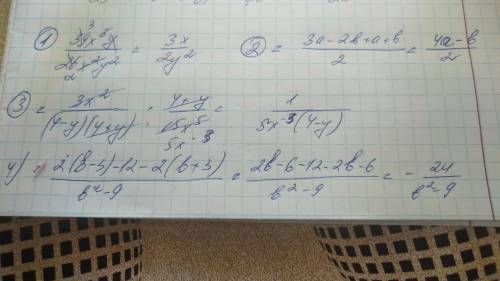 ① 39x³y / 26x²y² = 3x / 2y² ② = 3a-2b+a+b / 2 = 4a-b / 2
③ = 3x² / (4-y)(4+y) · 4+y / 15x⁵ = 1 / 5x⁻³(4-y)
4) = 2(b-3)-12-2(b+3) / b²-9 = 2b-6-12-2b-6 / b²-9 = - 24 / b²-9